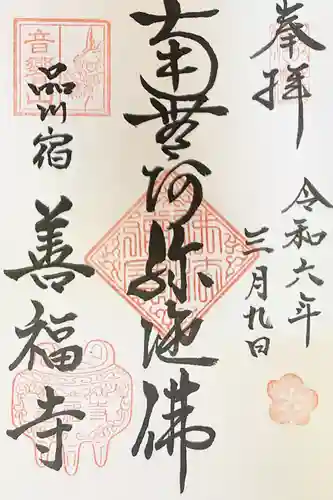 奉拝
令和六年
三月九日
南無阿弥陀佛
品川宿
善福寺